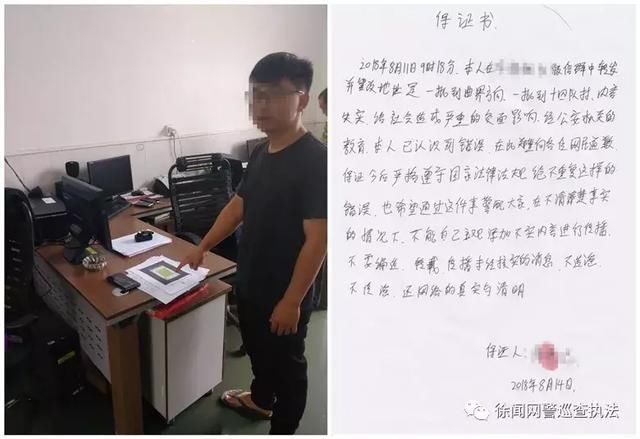 保证书
2018年8月11日9时18分，本人在 微信群中转发
并篡改地址是一批到曲界方向，一批到十四队村，内容
失实，给社会造成严重的负面影响，经公安机关的
教育，本人已认识到错误，在此想向各位网民道歉，
保证今后严格遵守国家法律法规，绝不重复这样的
错误，也希望通过这件事警醒大家，在不清楚事实
的情况下，不能自己主观添加不实内容进行传播，
不要编造，转载，传播未经核实的消息，不造谣，
不传谣，还网络的真实与清明
保证人：
2018年8月14日.
徐闻网警巡查执法